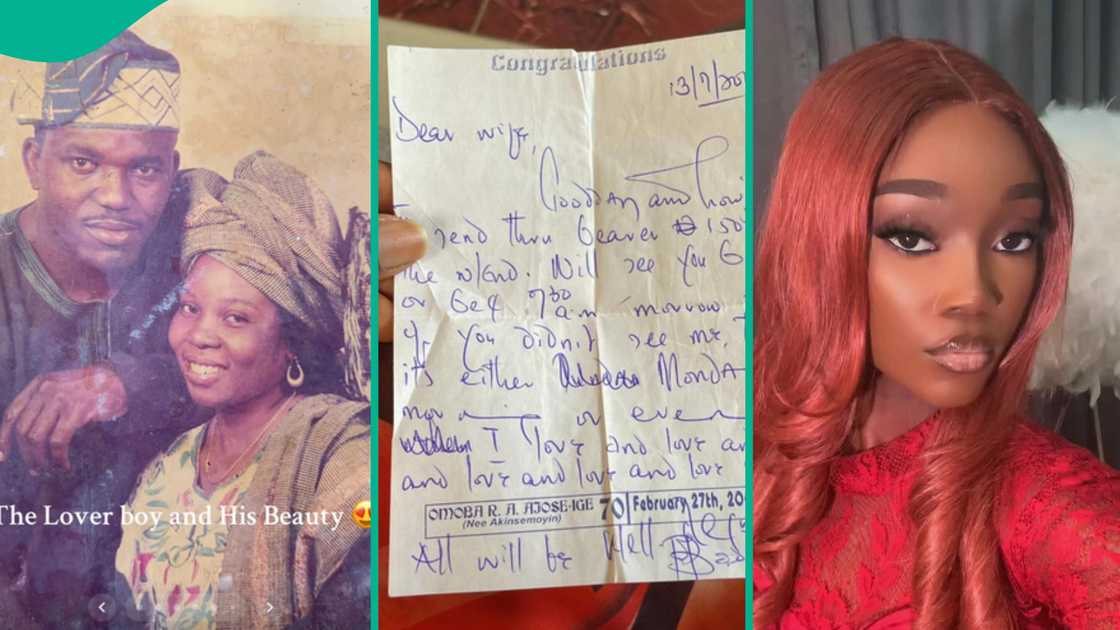 The Lover boy and His Beauty
Congratulations
13/7/20
Dear wife,
Good day and how
send thru bearer ₦ 150
the w/end. Will see you
or 7:30 a.m morrow
If you didn't see me,
it's either MONDA
or even
I love and love an
and love and love and love
OMOBA R. A. AJOSE-IGE 70 February 27th, 20
(Nee Akinsemoyin)
All will be well